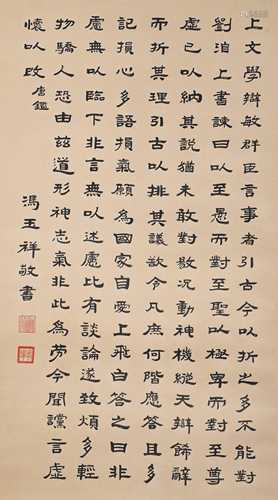 上文學辯敏群臣言事者引古今以折之多不能對
劉洎上書諫曰以至愚而對至聖以極卑而對至尊
虛己以納其說猶未敢對敭況動神機縱天辯飾辭
而折其理引古以排其議欲令凡庶何階應答且多
記損心多語損氣願為國家自愛上飛白答之曰非
慮無以臨下非言無以述慮比有談論遂致煩多輕
物驕人恐由茲道形神志氣非此為勞今聞讜言虛
懷以改 唐鑑
馮玉祥敬書